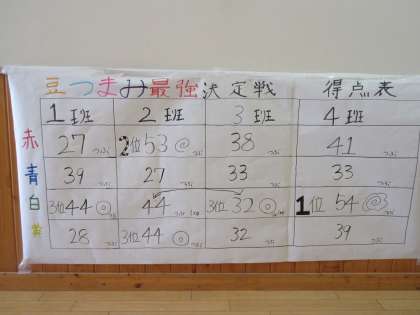 豆つまみ最強決定戦 得点表
1班 2班 3班 4班
赤 27つぶ 2位 53つぶ 38つぶ 41つぶ
青 39つぶ 27つぶ 33つぶ 33つぶ
白 3位 44つぶ 44つぶ 3位 32つぶ 1位 54つぶ
黄 28つぶ 3位 44つぶ 32つぶ 39つぶ